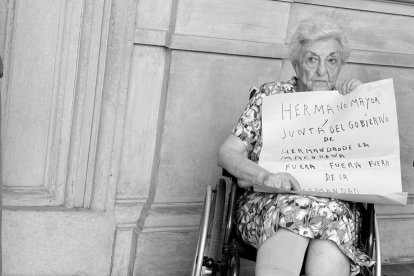 HERMANA MAYOR
Y
JUNTA DEL GOBIERNO
DE
HERMANDAD DE LA
MACARENA
FUERA FUERA FUERA
DE LA
HERMANDAD